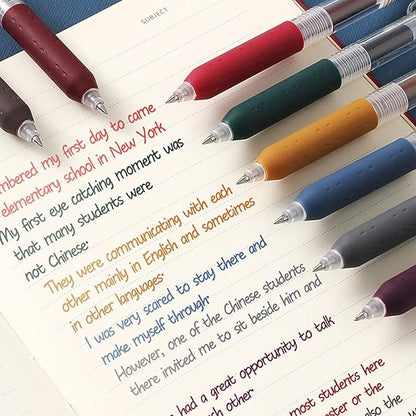 SUBJECT.
mbered my first day to came
elementary school in New York
My first eye catching moment was
that many students were
not Chinese.
They were communicating with each
other mainly in English and sometimes
in other languages.
I was very scared to stay there and
make myself through.
However, one of the Chinese students
there invited me to sit beside him and
had a great opportunity to talk
each other
most students here
or the
also the